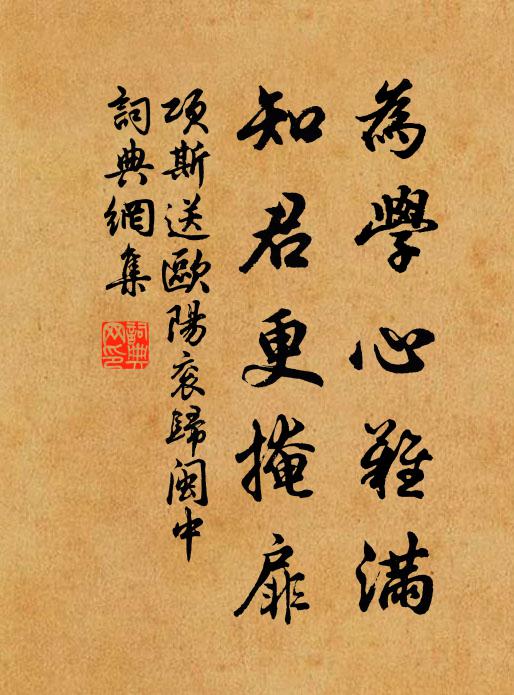 為學心難滿
知君更掩扉
項斯送歐陽衮歸閩中
詞典網集
詞典
网印